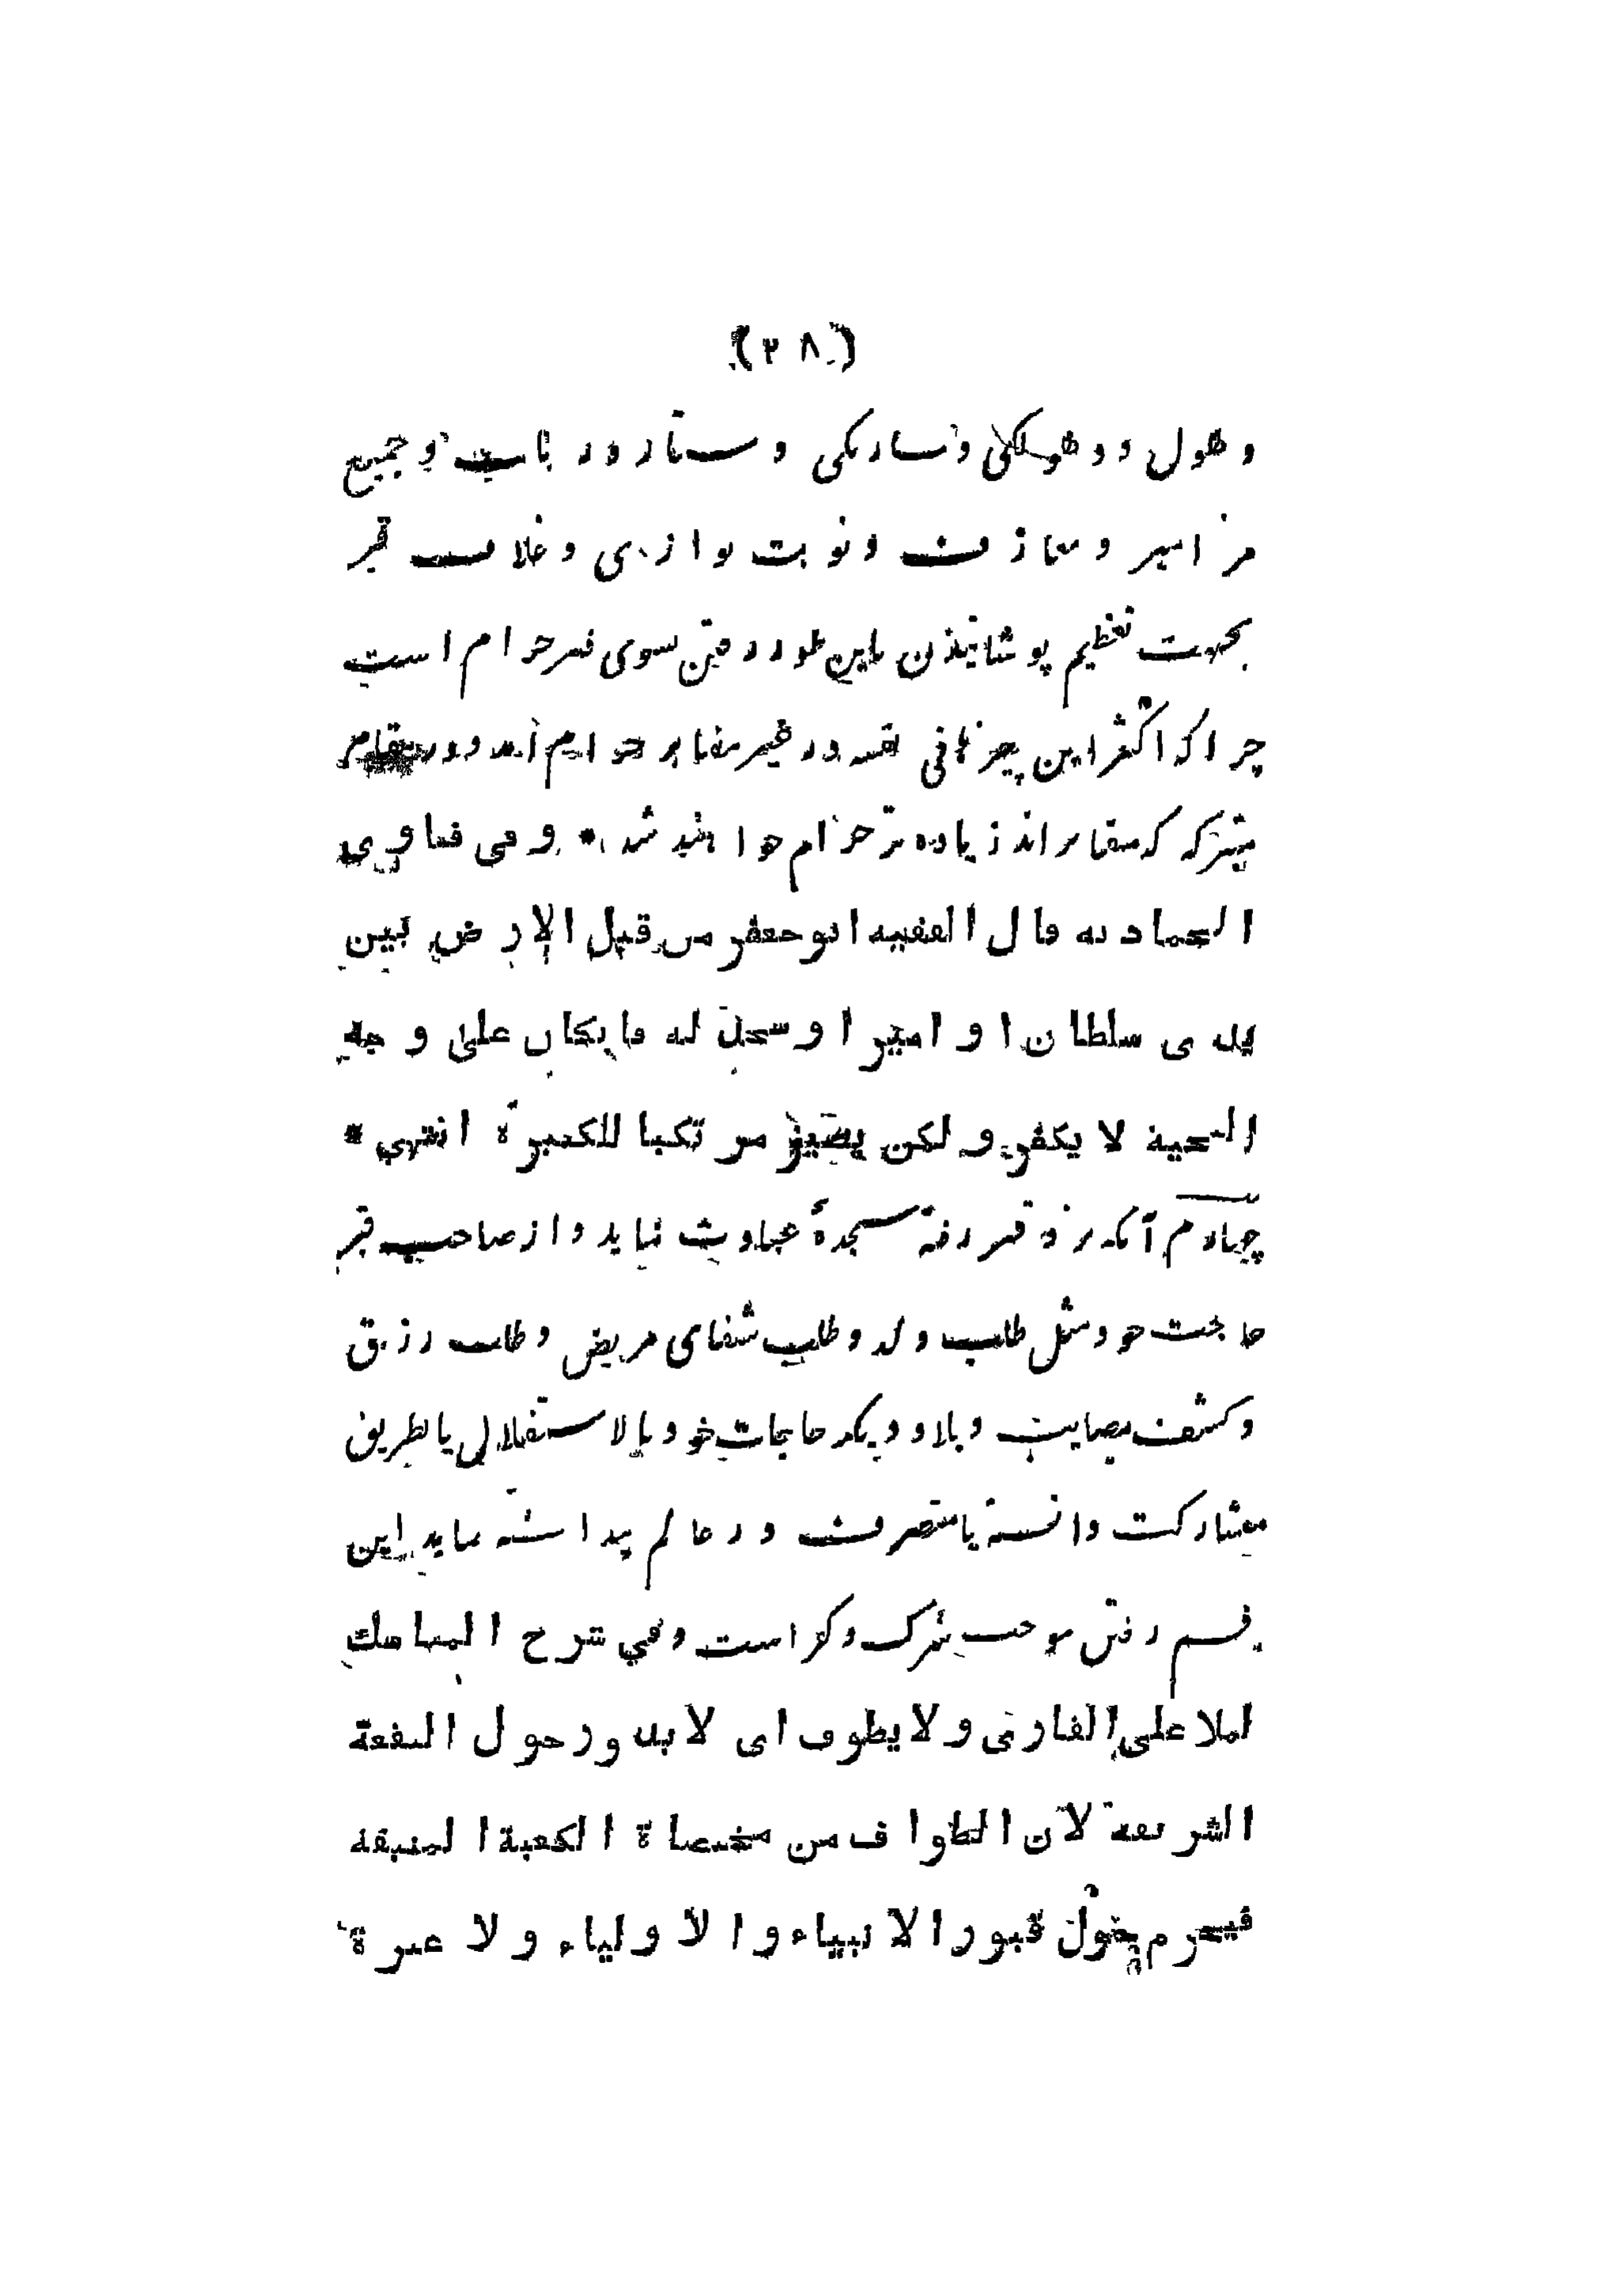 (٢٨)
و ڈھول و ڈھولکی و سارنگی و ستار و رباب و جمیع
مزامیر و معازف و نوبت نوازی و غلاف قبر
بجهت تعظیم پوشانیدن باین طور رفتن سوی قبر حرام است
چرا که اکثر این چیزها فی نفسه در غیر مقابر حرام اند و در مقام
متبرکه که مقابر اند زیاده تر حرام خواهند شد * و فی فتاوی
الحمادیه قال الفقیه ابو جعفر من قبل الارض بین
یدی سلطان او امیر او سجد له فان کان علی وجه
التحیة لا یکفر و لکن یصیر مرتکبا للکبیرة انتهی *
چهارم آنکه نزد قبر رفته سجدهٔ عبادت نماید و از صاحب قبر
حاجت خود مثل طلب ولد و طلب شفای مریض و طلب رزق
و کشف مصایب و بلا و دیگر حاجات خود بالاستقلال یا بطریق
مشارکت دانسته یا متصرف در عالم پنداشته نماید این
قسم رفتن موجب شرک و کفر است و فی شرح المناسك
لملا علی القاری و لا یطوف ای لا یدور حول البقعة
الشریفة لان الطواف من مختصاة الکعبة المنیفة
فیحرم حول قبور الانبیاء و الاولیاء و لا عبرة